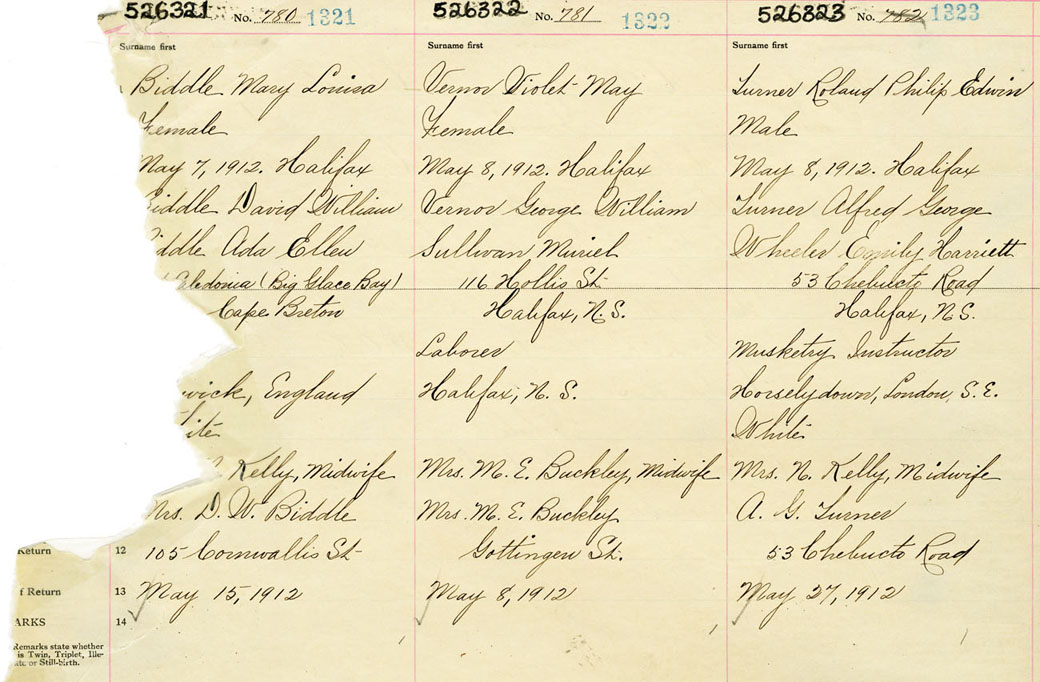 526321 No. 780 1321
Surname first
Biddle Mary Louisa
Female
May 7, 1912. Halifax
Biddle David William
iddle Ada Ellen
Caledonia (Big Glace Bay)
Cape Breton
wick, England
ite
Kelly, Midwife
Mrs. D. W. Biddle
105 Cornwallis St
May 15, 1912
526322 No. 781 1322
Surname first
Vernor Violet May
Female
May 8, 1912. Halifax
Vernor George William
Sullivan Muriel
116 Hollis St.
Halifax, N. S.
Laborer
Halifax, N. S.
Mrs. M. E. Buckley, Midwife
Mrs. M. E. Buckley
Gottingen St.
May 8, 1912
526323 No. 782 1323
Surname first
Turner Roland Philip Edwin
Male
May 8, 1912. Halifax
Turner Alfred George
Wheeler Emily Harriett
53 Chebucto Road
Halifax, N S.
Musketry Instructor
Horselydown, London, S. E.
White
Mrs. N. Kelly, Midwife
A. G. Turner
53 Chebucto Road
May 27, 1912
Return 12
f Return 13
ARKS 14
Remarks state whether
is Twin, Triplet, Ille-
ate or Still-birth.